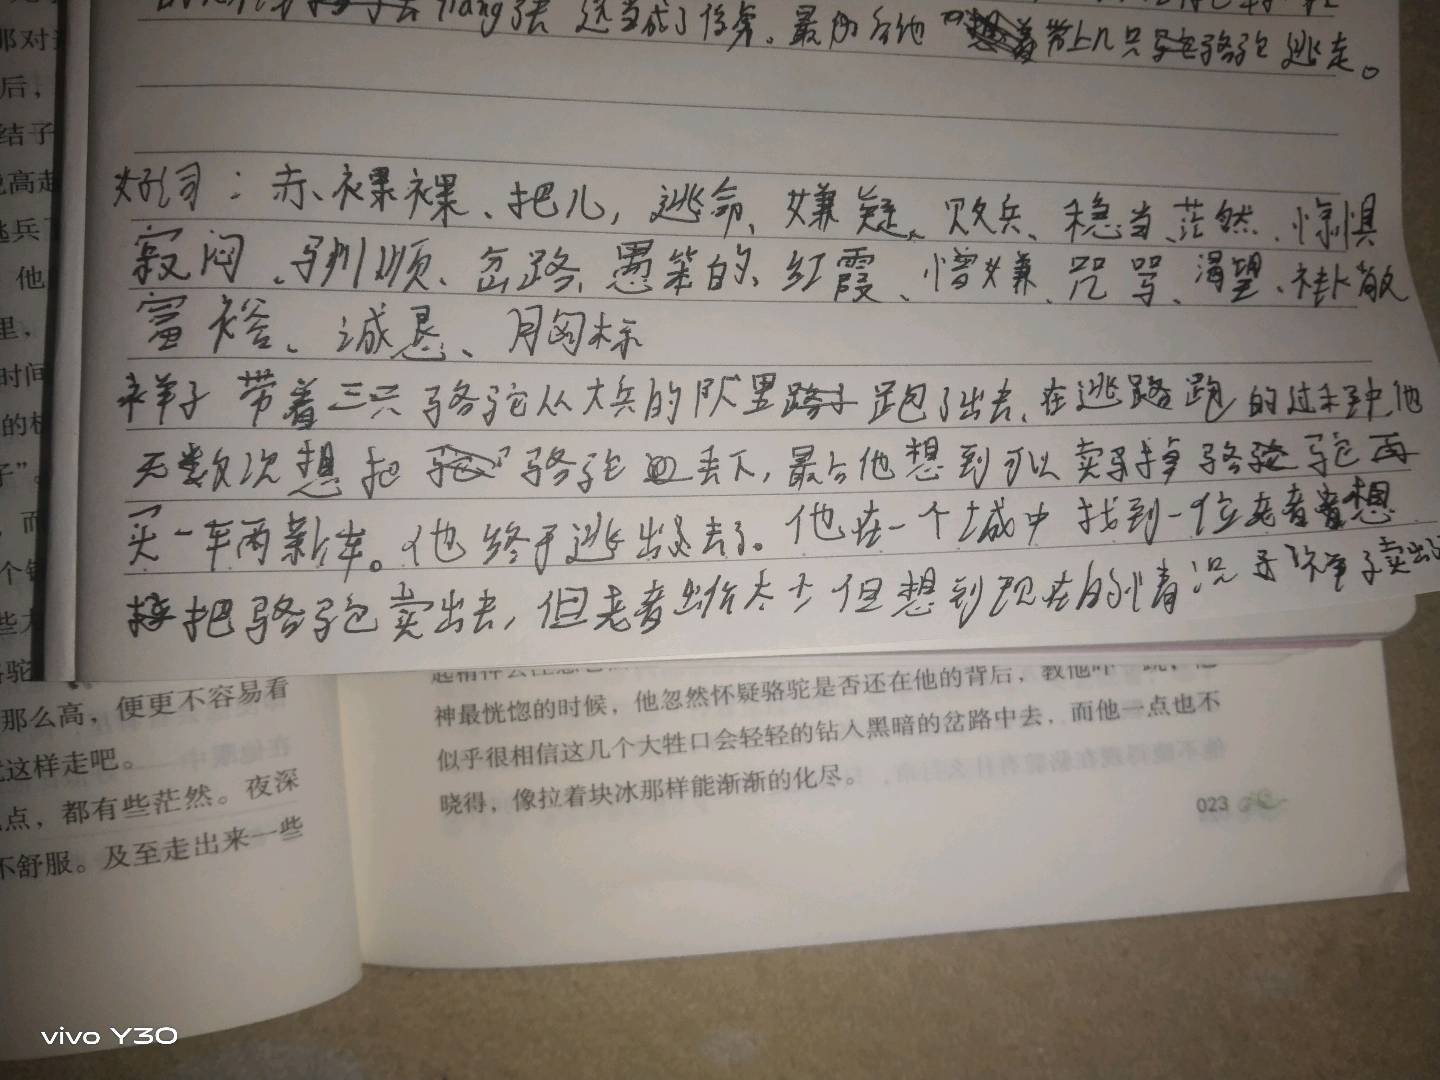 还当成了俘虏。最后他 带上几只骆驼逃走。
好词：赤裸裸、把儿，逃命、嫌疑、败兵、稳当、茫然、惊惧
寂闷、驯顺、岔路、愚笨的、红霞、憎嫌、咒骂、渴望、褂敞
富裕、诚恳、胸标
祥子带着三只骆驼从大兵的队里跑了出去、在逃跑的过程中他
无数次想把骆驼丢下，最后他想到可以卖掉骆驼再
买一车两新车。他终于逃出去了。他在一个城中找到一位老者想
把骆驼卖出去，但老者出价太少但想到现在的情况 祥子卖出
那对
后，
结子
高起
逃兵
他
里，
时间
的
子”。
，而
个
些大
骆驼
那么高，便更不容易看
就这样走吧。
点，都有些茫然。夜深
不舒服。及至走出来一些
神最恍惚的时候，他忽然怀疑骆驼是否还在他的背后，教他吓一跳；他
似乎很相信这几个大牲口会轻轻的钻入黑暗的岔路中去，而他一点也不
晓得，像拉着块冰那样能渐渐的化尽。
023
vivo Y30